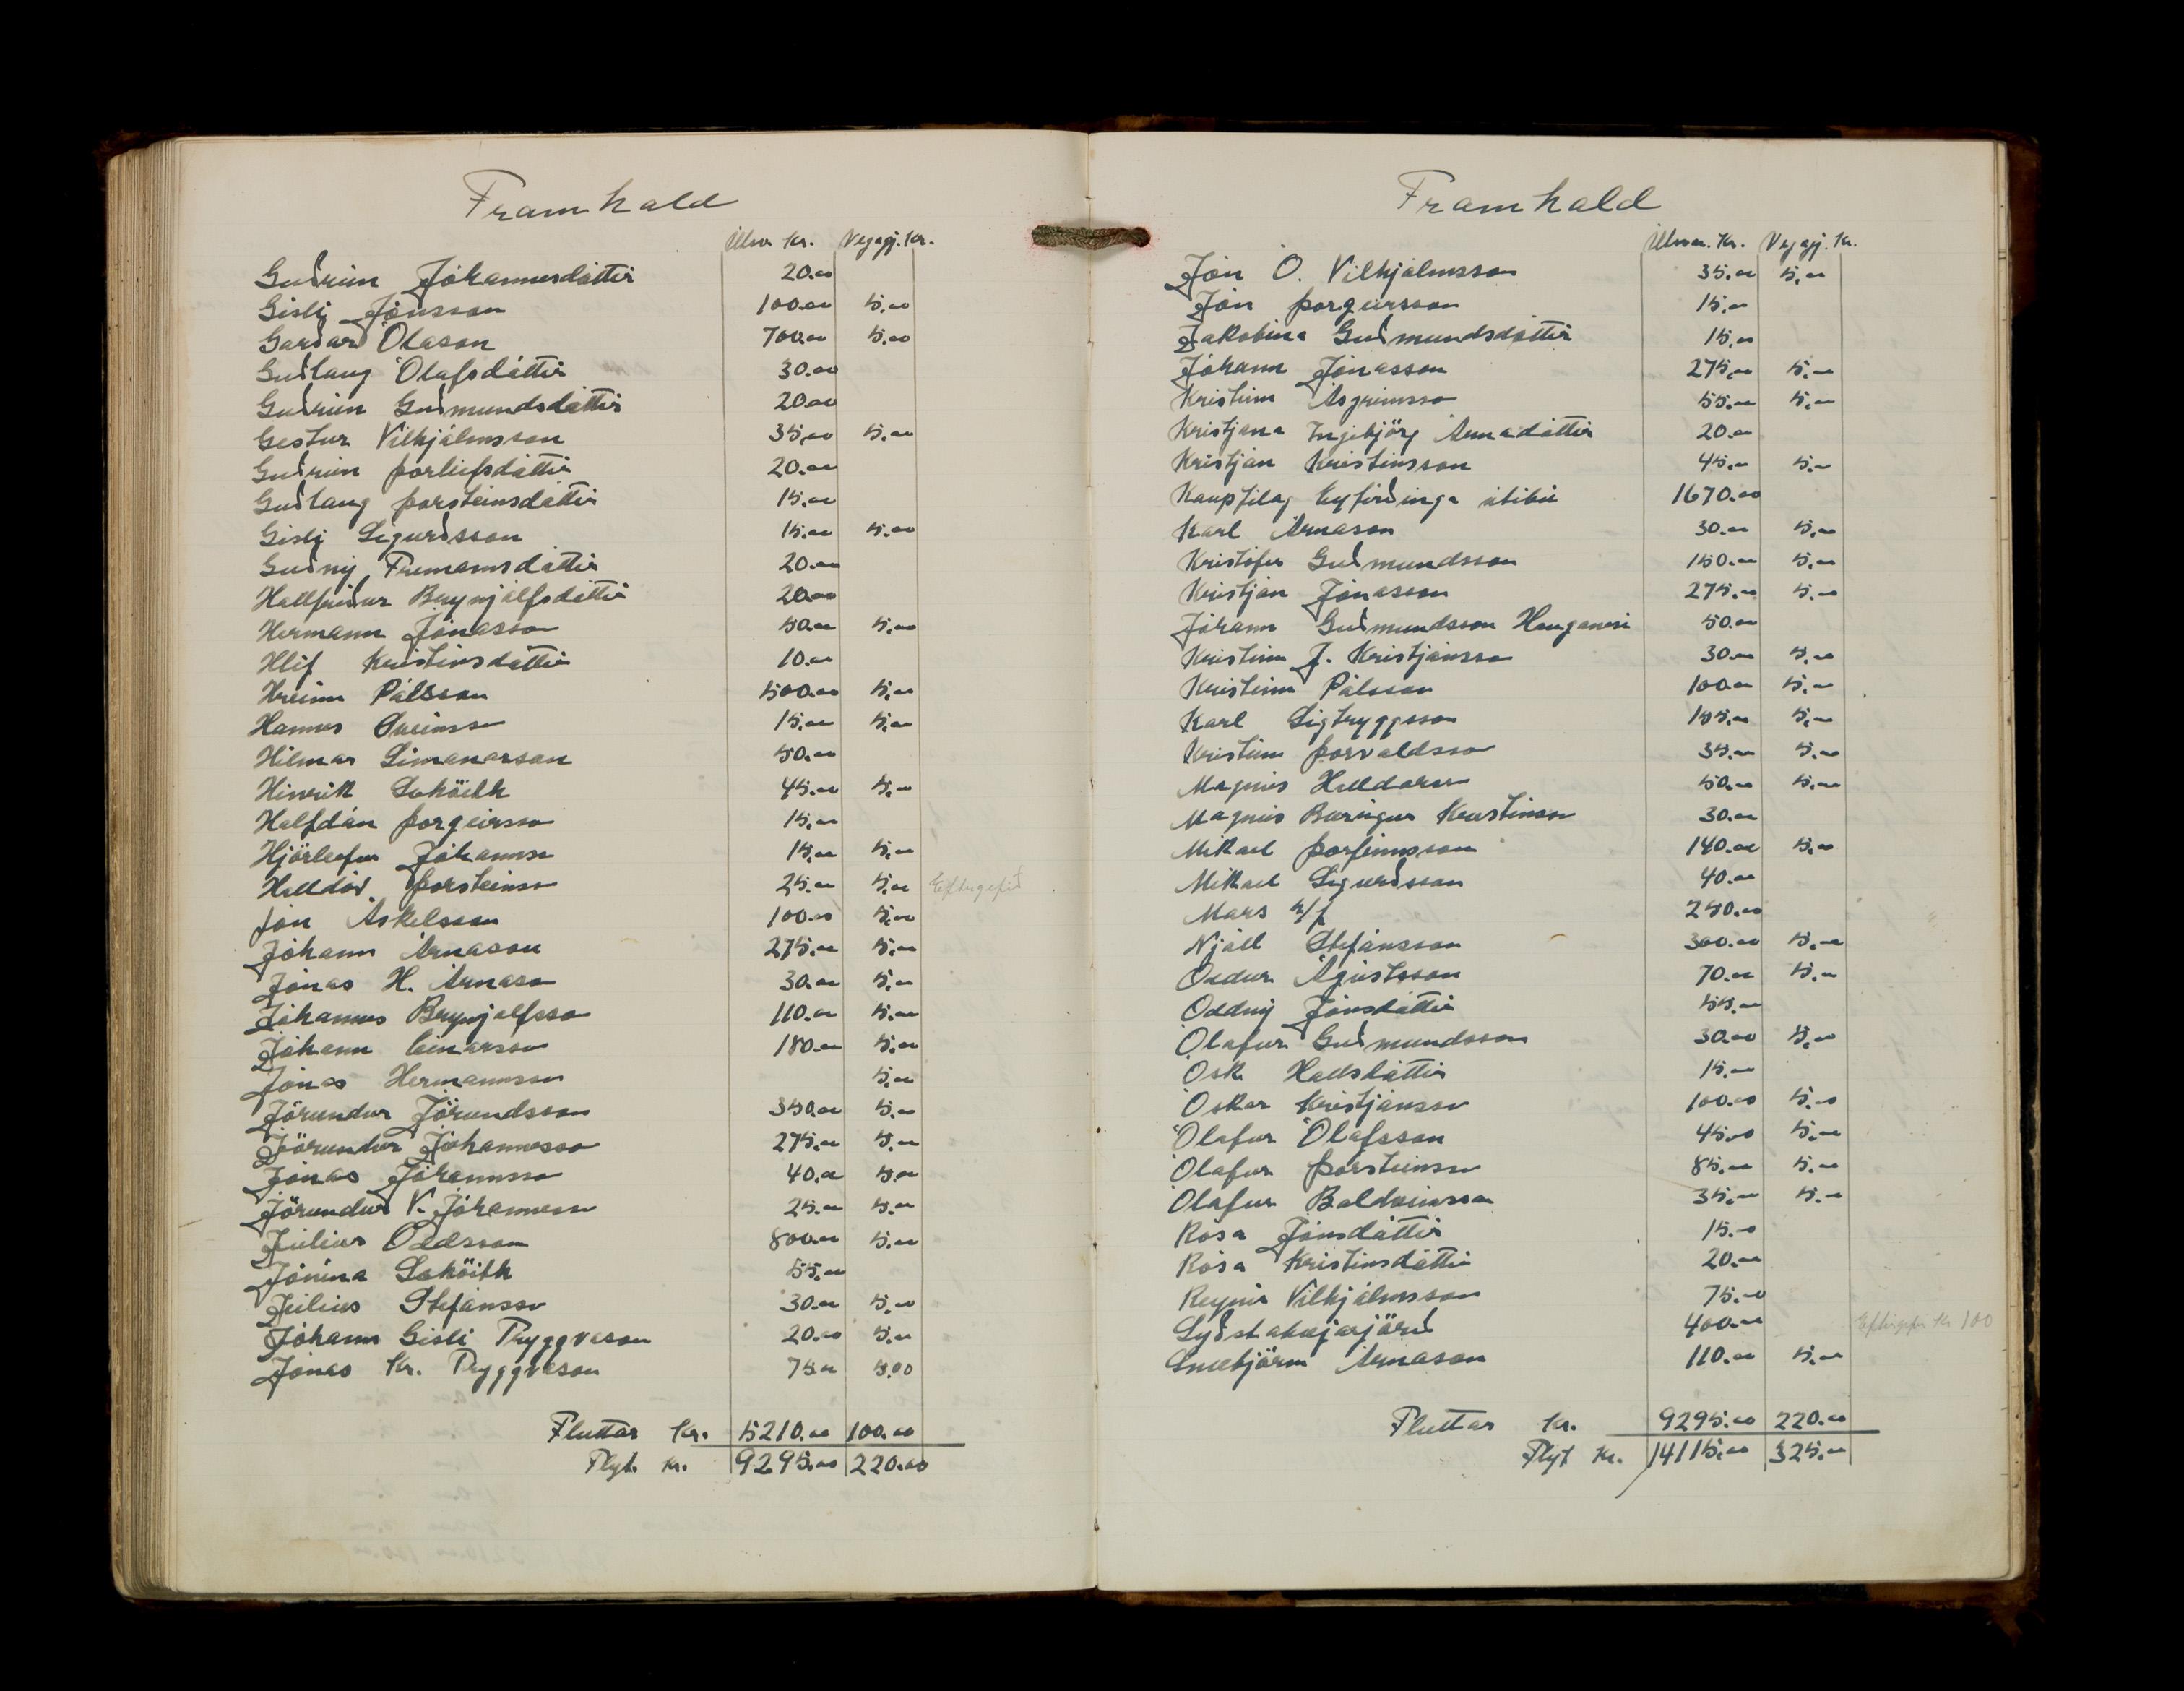 Framhald
Útsv. Kr. Vegagj. Kr.
Guðrún Jóhannesdóttir 20.00
Gísli Jónsson 100.00 5.00
Garðar Ólason 700.00 5.00
Guðlaug Ólafsdóttir 30.00
Guðrún Guðmundsdóttir 20.00
Gestur Vilhjálmsson 35.00 5.00
Guðrún Þorleifsdóttir 20.00
Guðlaug Þorsteinsdóttir 15.00
Gísli Sigurðsson 15.00 5.00
Guðný Frímannsdóttir 20.00
Hallfríður Brynjólfsdóttir 20.00
Hermann Jónasson 50.00 5.00
Hlíf Kristinsdóttir 10.00
Hreinn Pálsson 500.00 5.00
Hannes Sveinsson 15.00 5.00
Hilmar Símonarson 50.00
Hinrik Schöith 45.00 5.00
Hálfdán Þorgeirsson 15.00
Hjörleifur Jóhannsson 15.00 5.00
Halldór Þorsteinsson 25.00 5.00 Eftirgefið
Jón Áskelsson 100.00 5.00
Jóhann Árnason 275.00 5.00
Jónas H. Árnason 30.00 5.00
Jóhannes Brynjólfsson 110.00 5.00
Jóhann Einarsson 180.00 5.00
Jónas Hermannsson 5.00
Jörundur Jörundsson 350.00 5.00
Jörundur Jóhannesson 275.00 5.00
Jónas Jóhannsson 40.00 5.00
Jörundur V. Jóhannesson 25.00 5.00
Júlíus Oddsson 800.00 5.00
Jónína Schöith 55.00
Júlíus Stefánsson 30.00 5.00
Jóhann Gísli Tryggvason 20.00 5.00
Jónas Kr. Tryggvason 75.00 5.00
Fluttar Kr. 5210.00 100.00
Flyt. Kr. 9295.00 220.00
Framhald
Útsvar. Kr. Vegagj. Kr.
Jón Ó. Vilhjálmsson 35.00 5.00
Jón Þorgeirsson 15.00
Jakobína Guðmundsdóttir 15.00
Jóhann Jónasson 275.00 5.00
Kristinn Ásgrímsson 55.00 5.00
Kristjana Ingibjörg Árnadóttir 20.00
Kristján Kristinsson 45.00 5.00
Kaupfélag Eyfirðinga útibú 1670.00
Karl Árnason 30.00 5.00
Kristófer Guðmundsson 150.00 5.00
Kristján Jónasson 275.00 5.00
Jóhann Guðmundsson Hauganesi 50.00
Kristinn J. Kristjánsson 30.00 5.00
Kristinn Pálsson 100.00 5.00
Karl Sigtryggsson 155.00 5.00
Kristinn Þorvaldsson 35.00 5.00
Magnús Halldórsson 50.00 5.00
Magnús Bæringur Kristinsson 30.00
Mikael Þorfinnsson 140.00 5.00
Mikael Sigurðsson 40.00
Mars h/f 250.00
Njáll Stefánsson 300.00 5.00
Oddur Ágústsson 70.00 5.00
Oddný Jónsdóttir 55.00
Ólafur Guðmundsson 30.00 5.00
Ósk Hallsdóttir 15.00
Óskar Kristjánsson 100.00 5.00
Ólafur Ólafsson 45.00 5.00
Ólafur Þorsteinsson 85.00 5.00
Ólafur Baldvinsson 35.00 5.00
Rósa Jónsdóttir 15.00
Rósa Kristinsdóttir 20.00
Reynir Vilhjálmsson 75.00
Syðstabæjarjörð 400.00 Eftirgefn Kr 100
Snæbjörn Árnason 110.00 5.00
Fluttar Kr. 9295.00 220.00
Flyt Kr. 14115.00 325.00